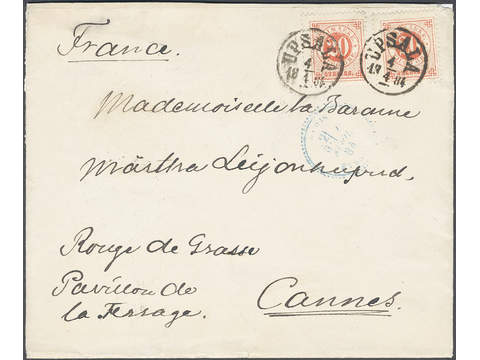 France.
UPSALA
4
1884
UPSALA
4
1884
Mademoiselle la Baronne
Märtha Leijonhufvud,
Rouge de Grasse
Pavillon de
la Terrage.
Cannes.